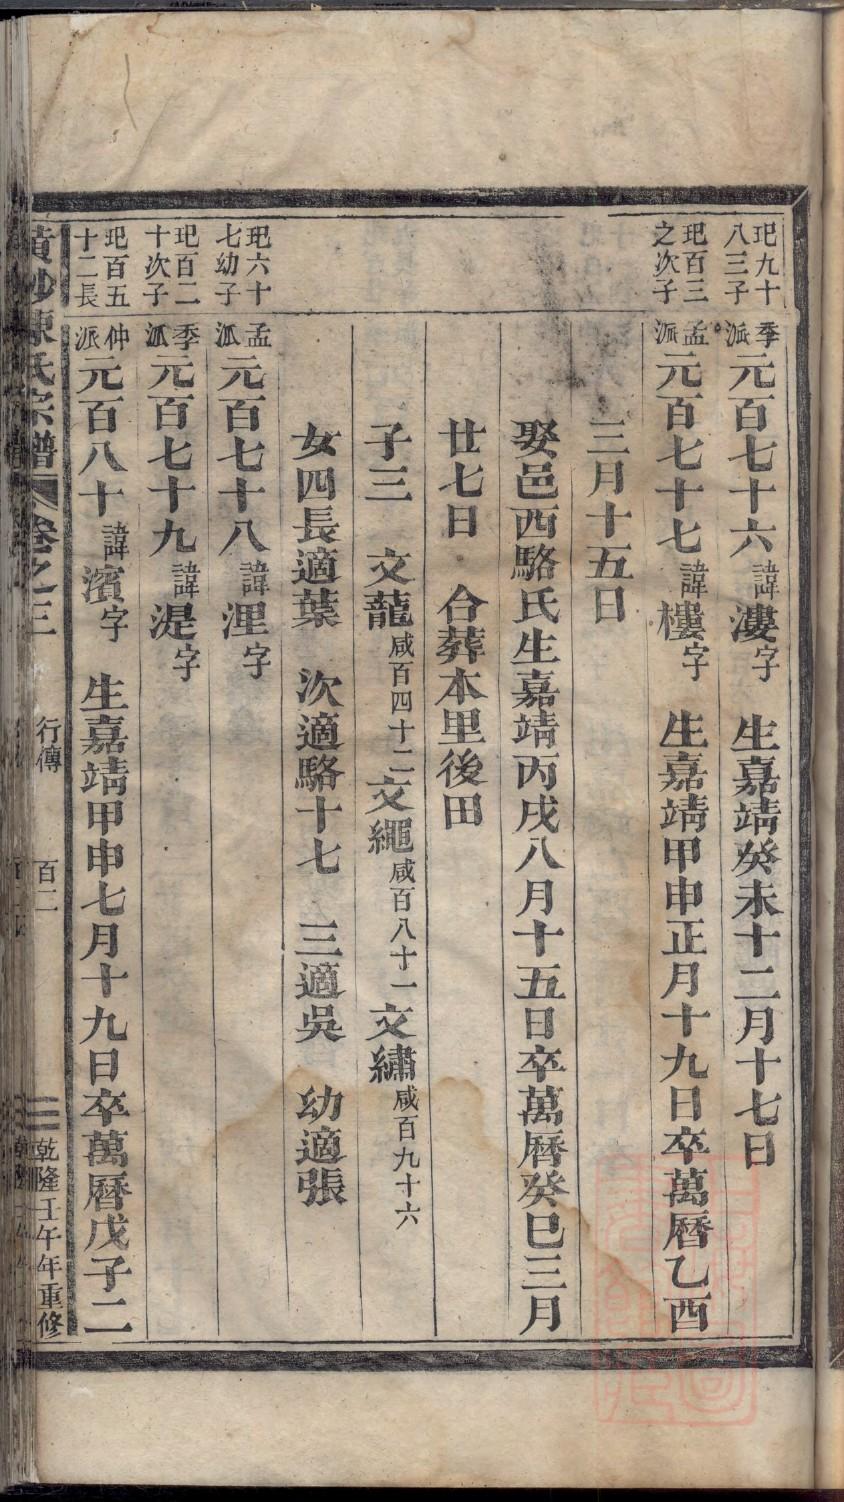 𤣱九十八三子
季派元百七十六諱漊字 生嘉靖癸未十二月十七日
𤣱百三之次子
孟派元百七十七諱樓字 生嘉靖甲申正月十九日卒萬曆乙酉
三月十五日
娶邑西駱氏生嘉靖丙戌八月十五日卒萬曆癸巳三月
廿七日 合葬本里後田
子三 文蘢咸百四十二 文繩咸百八十一 文繡咸百九十六
女四長適葉 次適駱十七 三適吳 幼適張
𤣱六十七幼子
孟派元百七十八諱浬字
𤣱百二十次子
季派元百七十九諱湜字
𤣱百五十二長
仲派元百八十諱濱字 生嘉靖甲申七月十九日卒萬曆戊子二
陳氏宗譜 卷之三 行傳 百二 乾隆壬午年重修